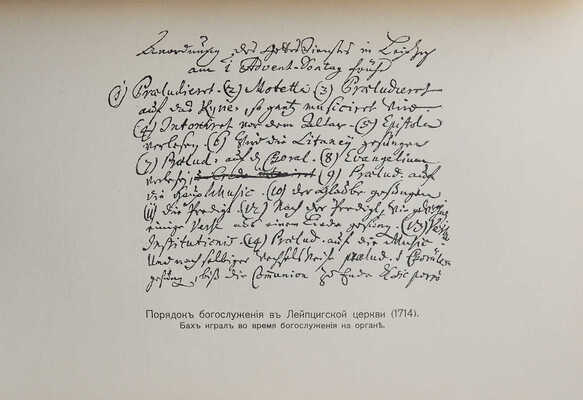 Anordnung des Gottesdienstes in Leipzig
am 1 Advent-Sontag früh
(1) Præludieret. (2) Motetta (3) Præludieret
auf das Kyrie, so gantz musiciret wird.
(4) Intoniret vor dem Altar. (5) Epistola
verlesen. (6) Wird die Litaney gesungen
(7) Prælud: auf d Choral. (8) Evangelium
verlesen (9) Prælud. auf
die HauptMusic. (10) der Glaube gesungen
(11) die Predigt. (12) Nach der Predigt, wie gewöhnl.
einige Vers aus einem Liede gesungen. (13) Verba
Institutionis (14) Prælud. auf die Music.
Und nach selbiger wechselsweise prælud. Choräle
gesungen, biß die Communion zu Ende & sic porro
Порядокъ богослуженія въ Лейпцигской церкви (1714).
Бахъ игралъ во время богослуженія на органѣ.